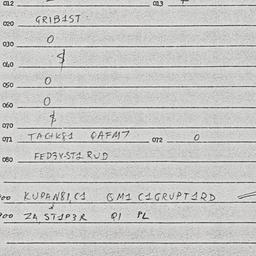 012 013
020 GRIB1ST
030 O
040 $
050 O
060 O
070 $
071 TACHK81 QAFM7 072 O
080 FED3V-ST1 RUD
00 KUPAN81,C1 QM1 C1GRUPT1QD
900 ZA, ST1P3R Q1 PL